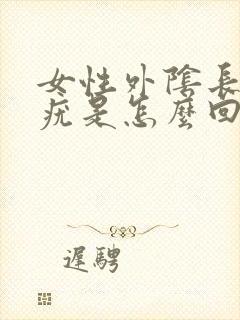 女性外陰長
疣是怎麼回
遲騁